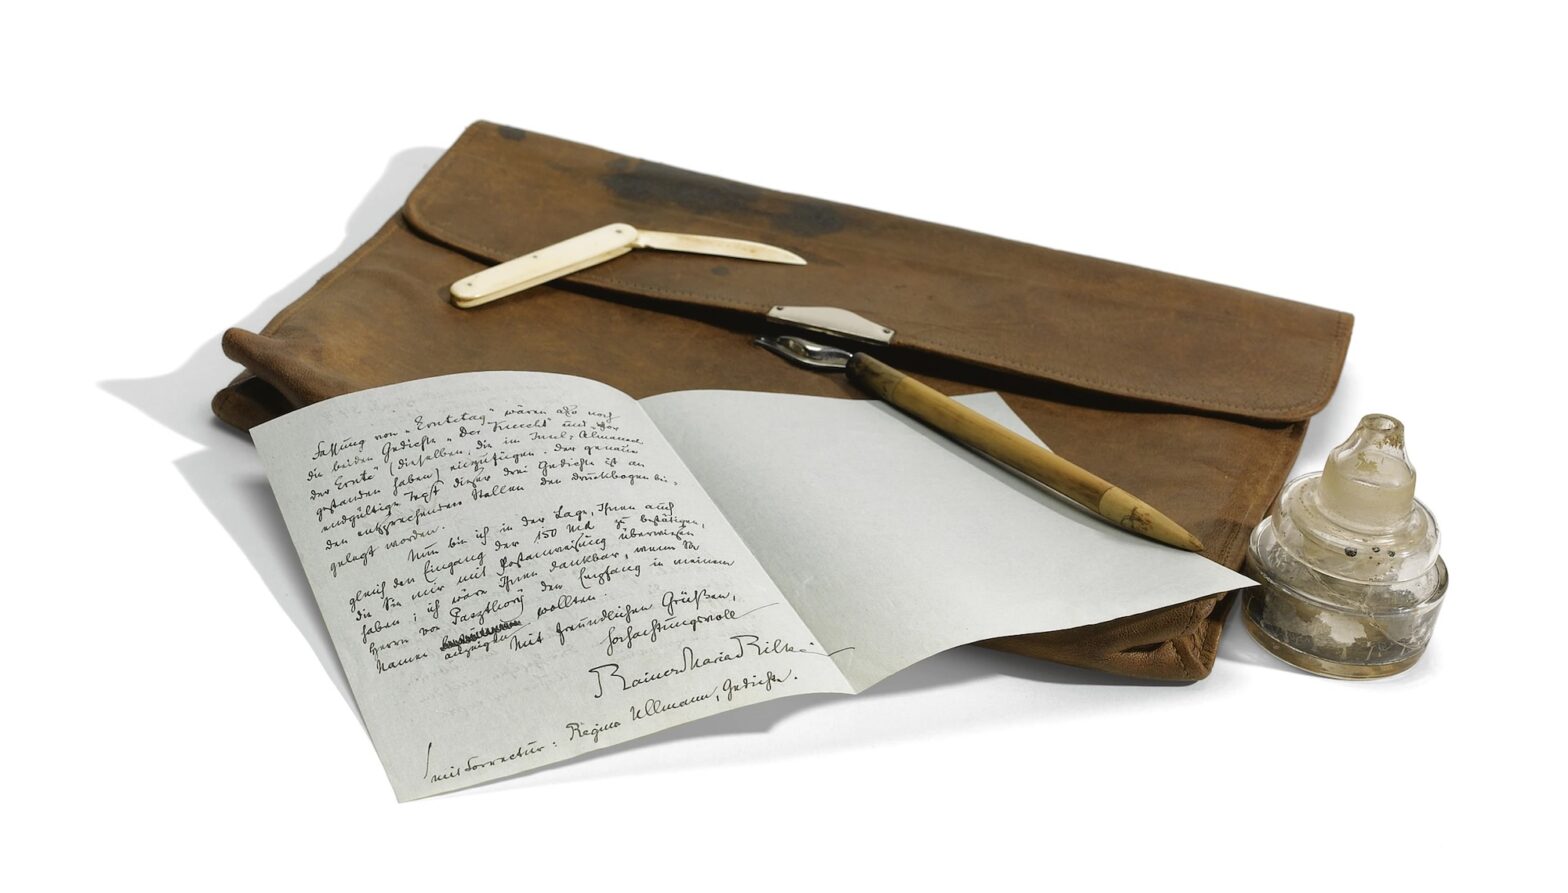 Fassung von „Erntetag" wären also noch
die beiden Gedichte „Der Knecht" und „Vor
der Ernte" (dieselben, die im Insel-Almanach
gestanden haben) einzufügen. Der genaue
endgültige Text dieser drei Gedichte ist an
den entsprechenden Stellen den Druckbogen bei-
gelegt worden.
Nun bin ich in der Lage, Ihnen auch
gleich den Eingang der 150 Mk zu bestätigen,
die Sie mir mit Postanweisung überwiesen
haben; ich wäre Ihnen dankbar, wenn Sie
Herrn von Paszthory den Empfang in meinem
Namen anzeigen wollten.
Mit freundlichen Grüßen,
hochachtungsvoll
Rainer Maria Rilke
mit Correctur: Regina Ullmann, Gedichte.